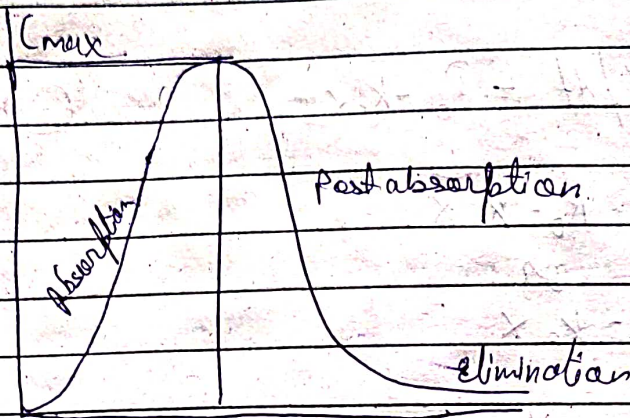 Cmax
Absorption
Post absorption
elimination